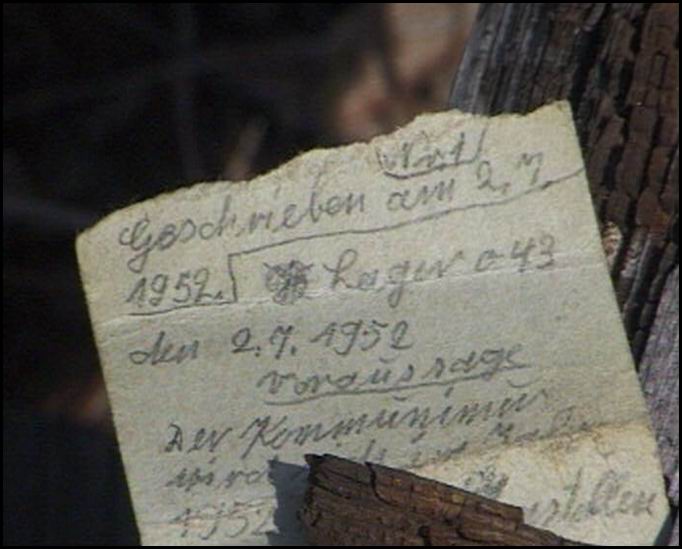 Nr 1
Geschrieben am 2. 7
1952. Lager 043
den 2.7. 1952
Voraussage
Der Kommunimus
wird
1952 stellen